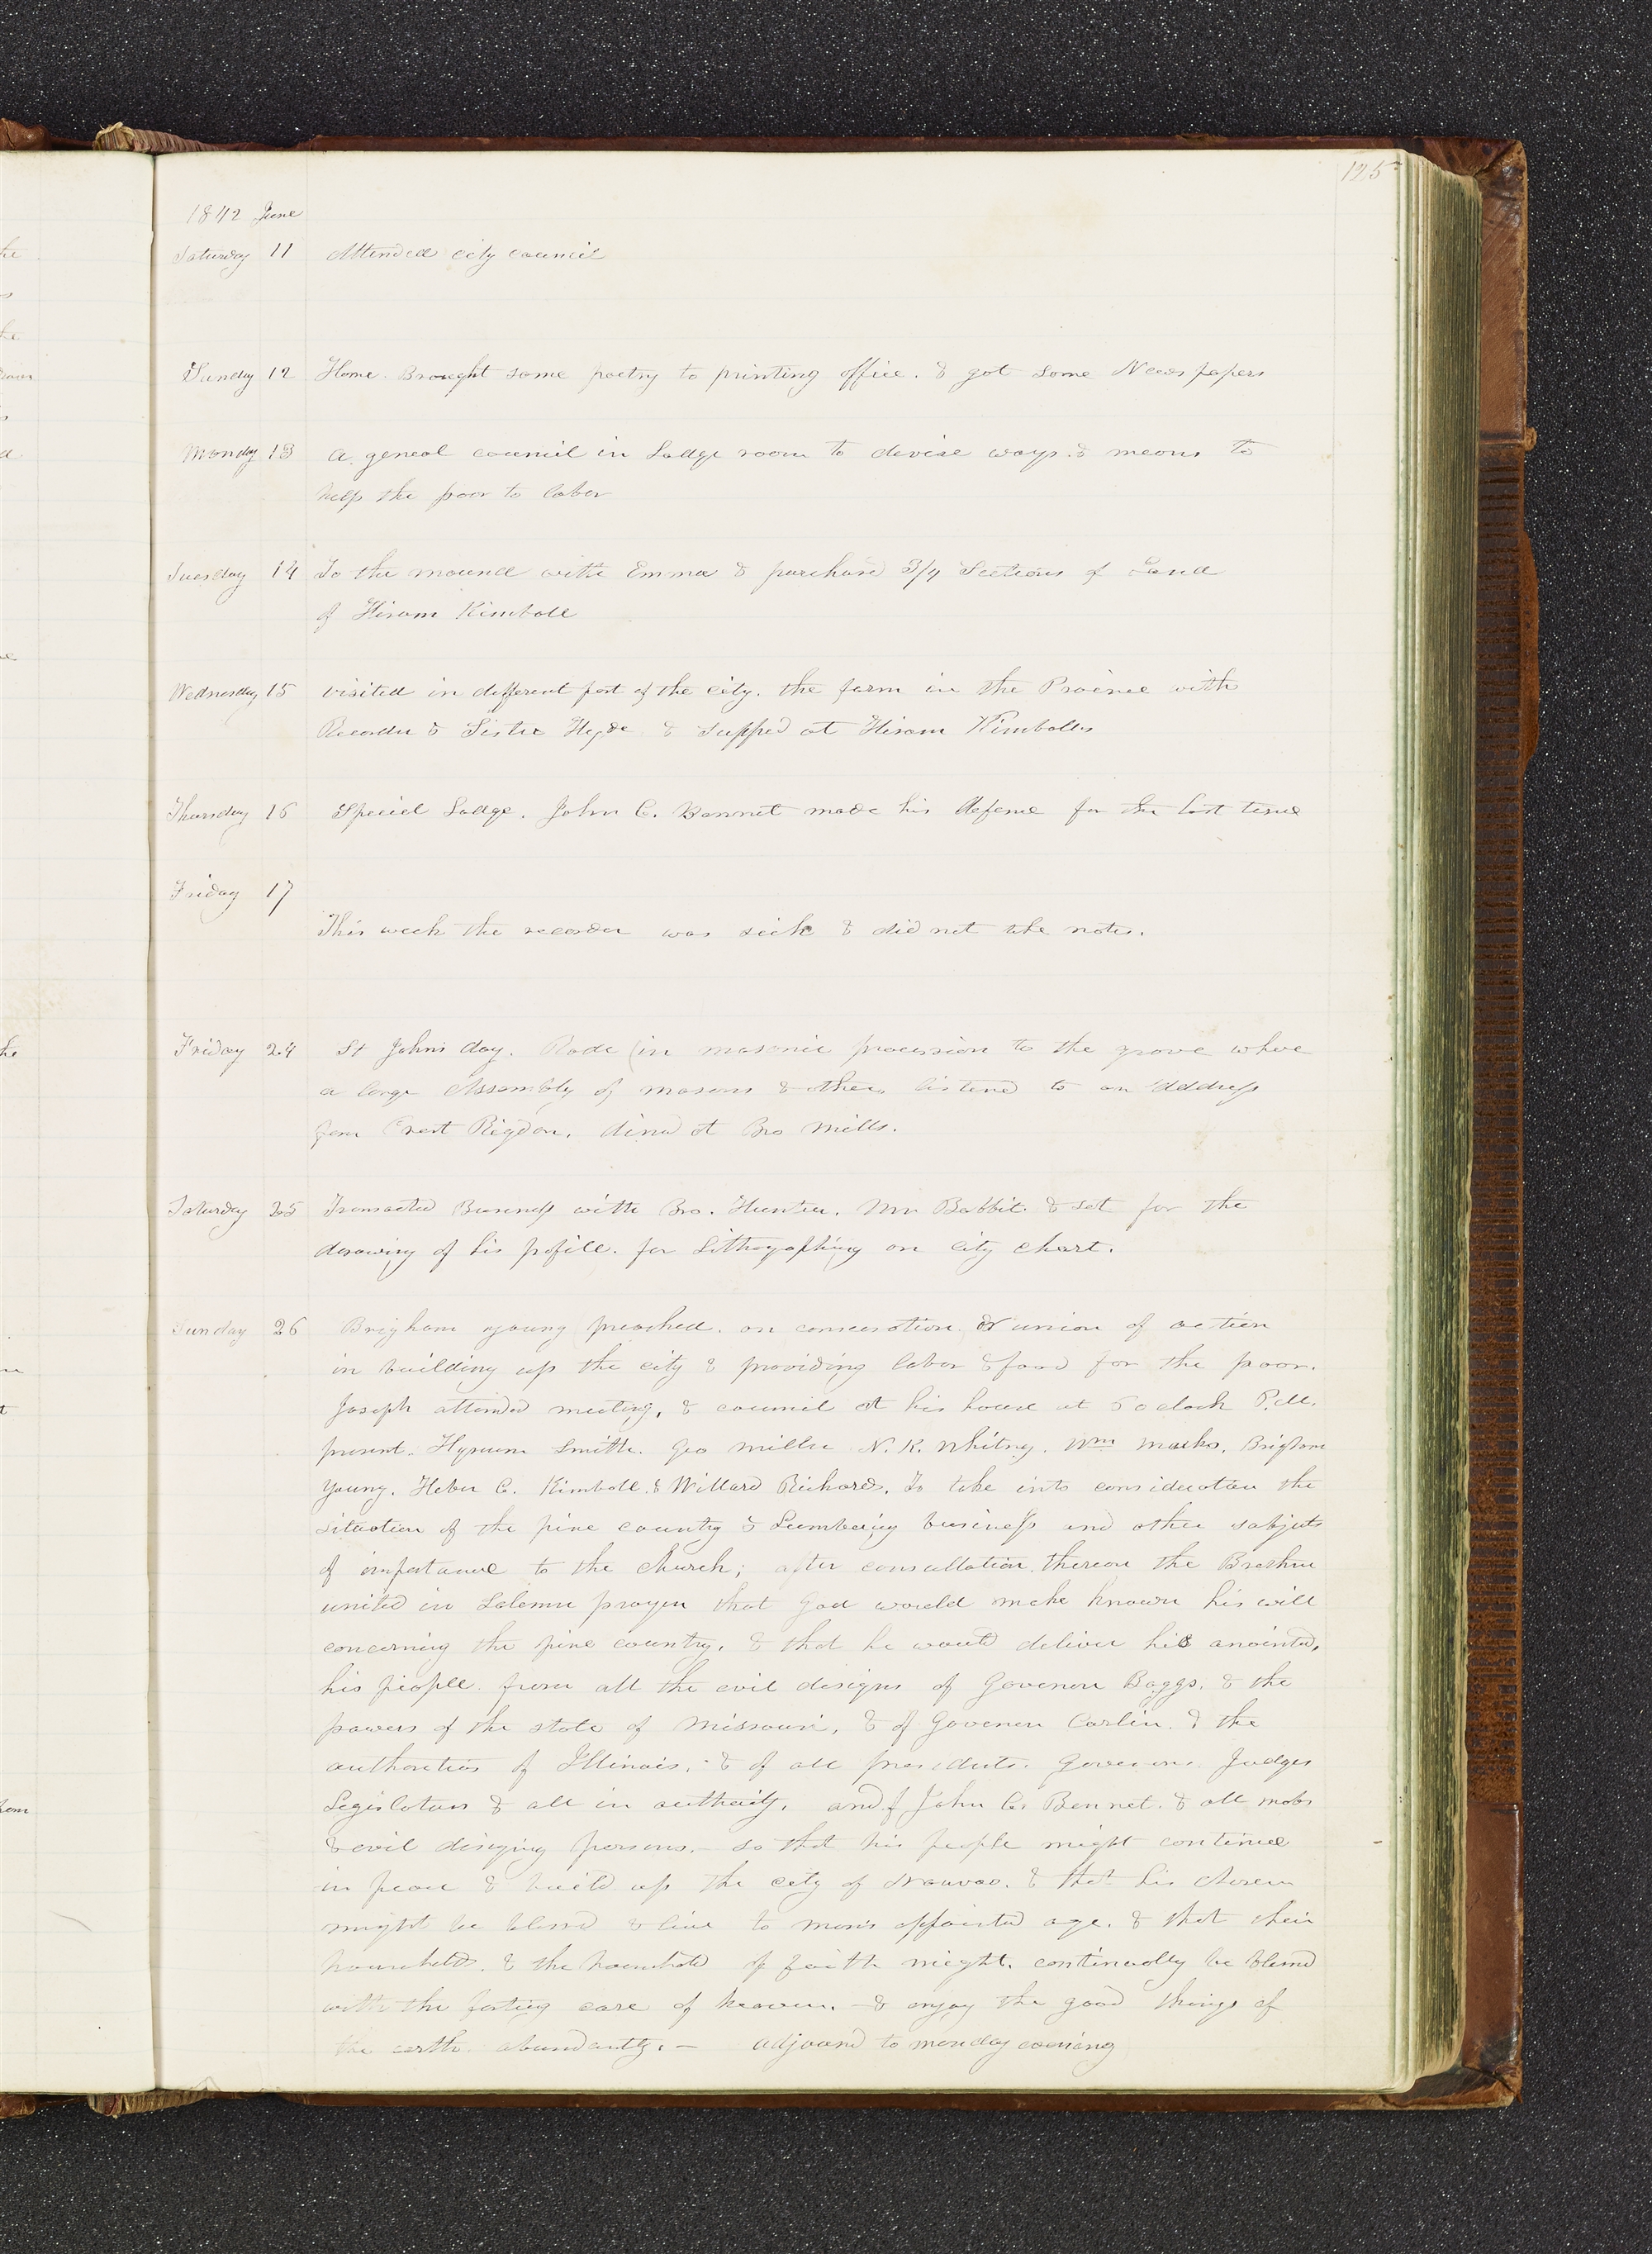 125
1842 June
Saturday 11 Attended city council
Sunday 12 Home. Brought some poetry to printing office. & got some News papers
Monday 13 a geneal council in Lodge room to devise ways. & means to
help the poor to labor
Tuesday 14 To the mound with Emma & purchased 3/4 Sections of Land
of Hiram Kimball
Wednesday 15 visited in different part of the city. the farm in the Prairie with
Recorder & Sister Hyde & supped at Hiram Kimballs
Thursday 16 Special Lodge. John C. Bennet made his defence for the last time
Friday 17
This week the recorder was sick & did not take notes.
Friday 24 St Johns day. Rode (in masonic procession to the grove where
a large Assembly of masons & others listend to an address
from Prest Rigdon. dined at Bro Mills.
Saturday 25 Transacted Business with Bro. Hunter. Mr Babbit. & set for the
drawing of his profile. for Lithographing on city chart.
Sunday 26 Brigham young preached. on consecration & union of action
in building up the city & providing labor & food for the poor.
Joseph attended meeting, & council at his house at 6 oclock P.M.
present. Hyrum Smith. Geo Miller N. K. Whitney. Wm Marks. Brigham
Young. Heber C. Kimball. & Willard Richards. To take into consideration the
situation of the pine country & Lumbering business and other subjects
of importance to the church; after consultation thereon the Brethren
united in Solemn prayer that God would make known his will
concerning the pine country. & that he would deliver his anointed,
his people. from all the evil designs of Governor Boggs, & the
powers of the state of Missouri, & of Governor Carlin. & the
authorities of Illinois, & of all presidents. Governors. Judges
Legislators & all in authority. and of John C. Bennet. & all mobs
& evil designing persons. — so that his people might continue
in peace & build up the city of Nauvoo. & that his chosen
might be blessed & live to man's appointed age. & that their
households. & the household of faith might. continually be blessed
with the fostering care of heaven. — & enjoy the good things of
the earth abundantly. — adjourned to monday evening